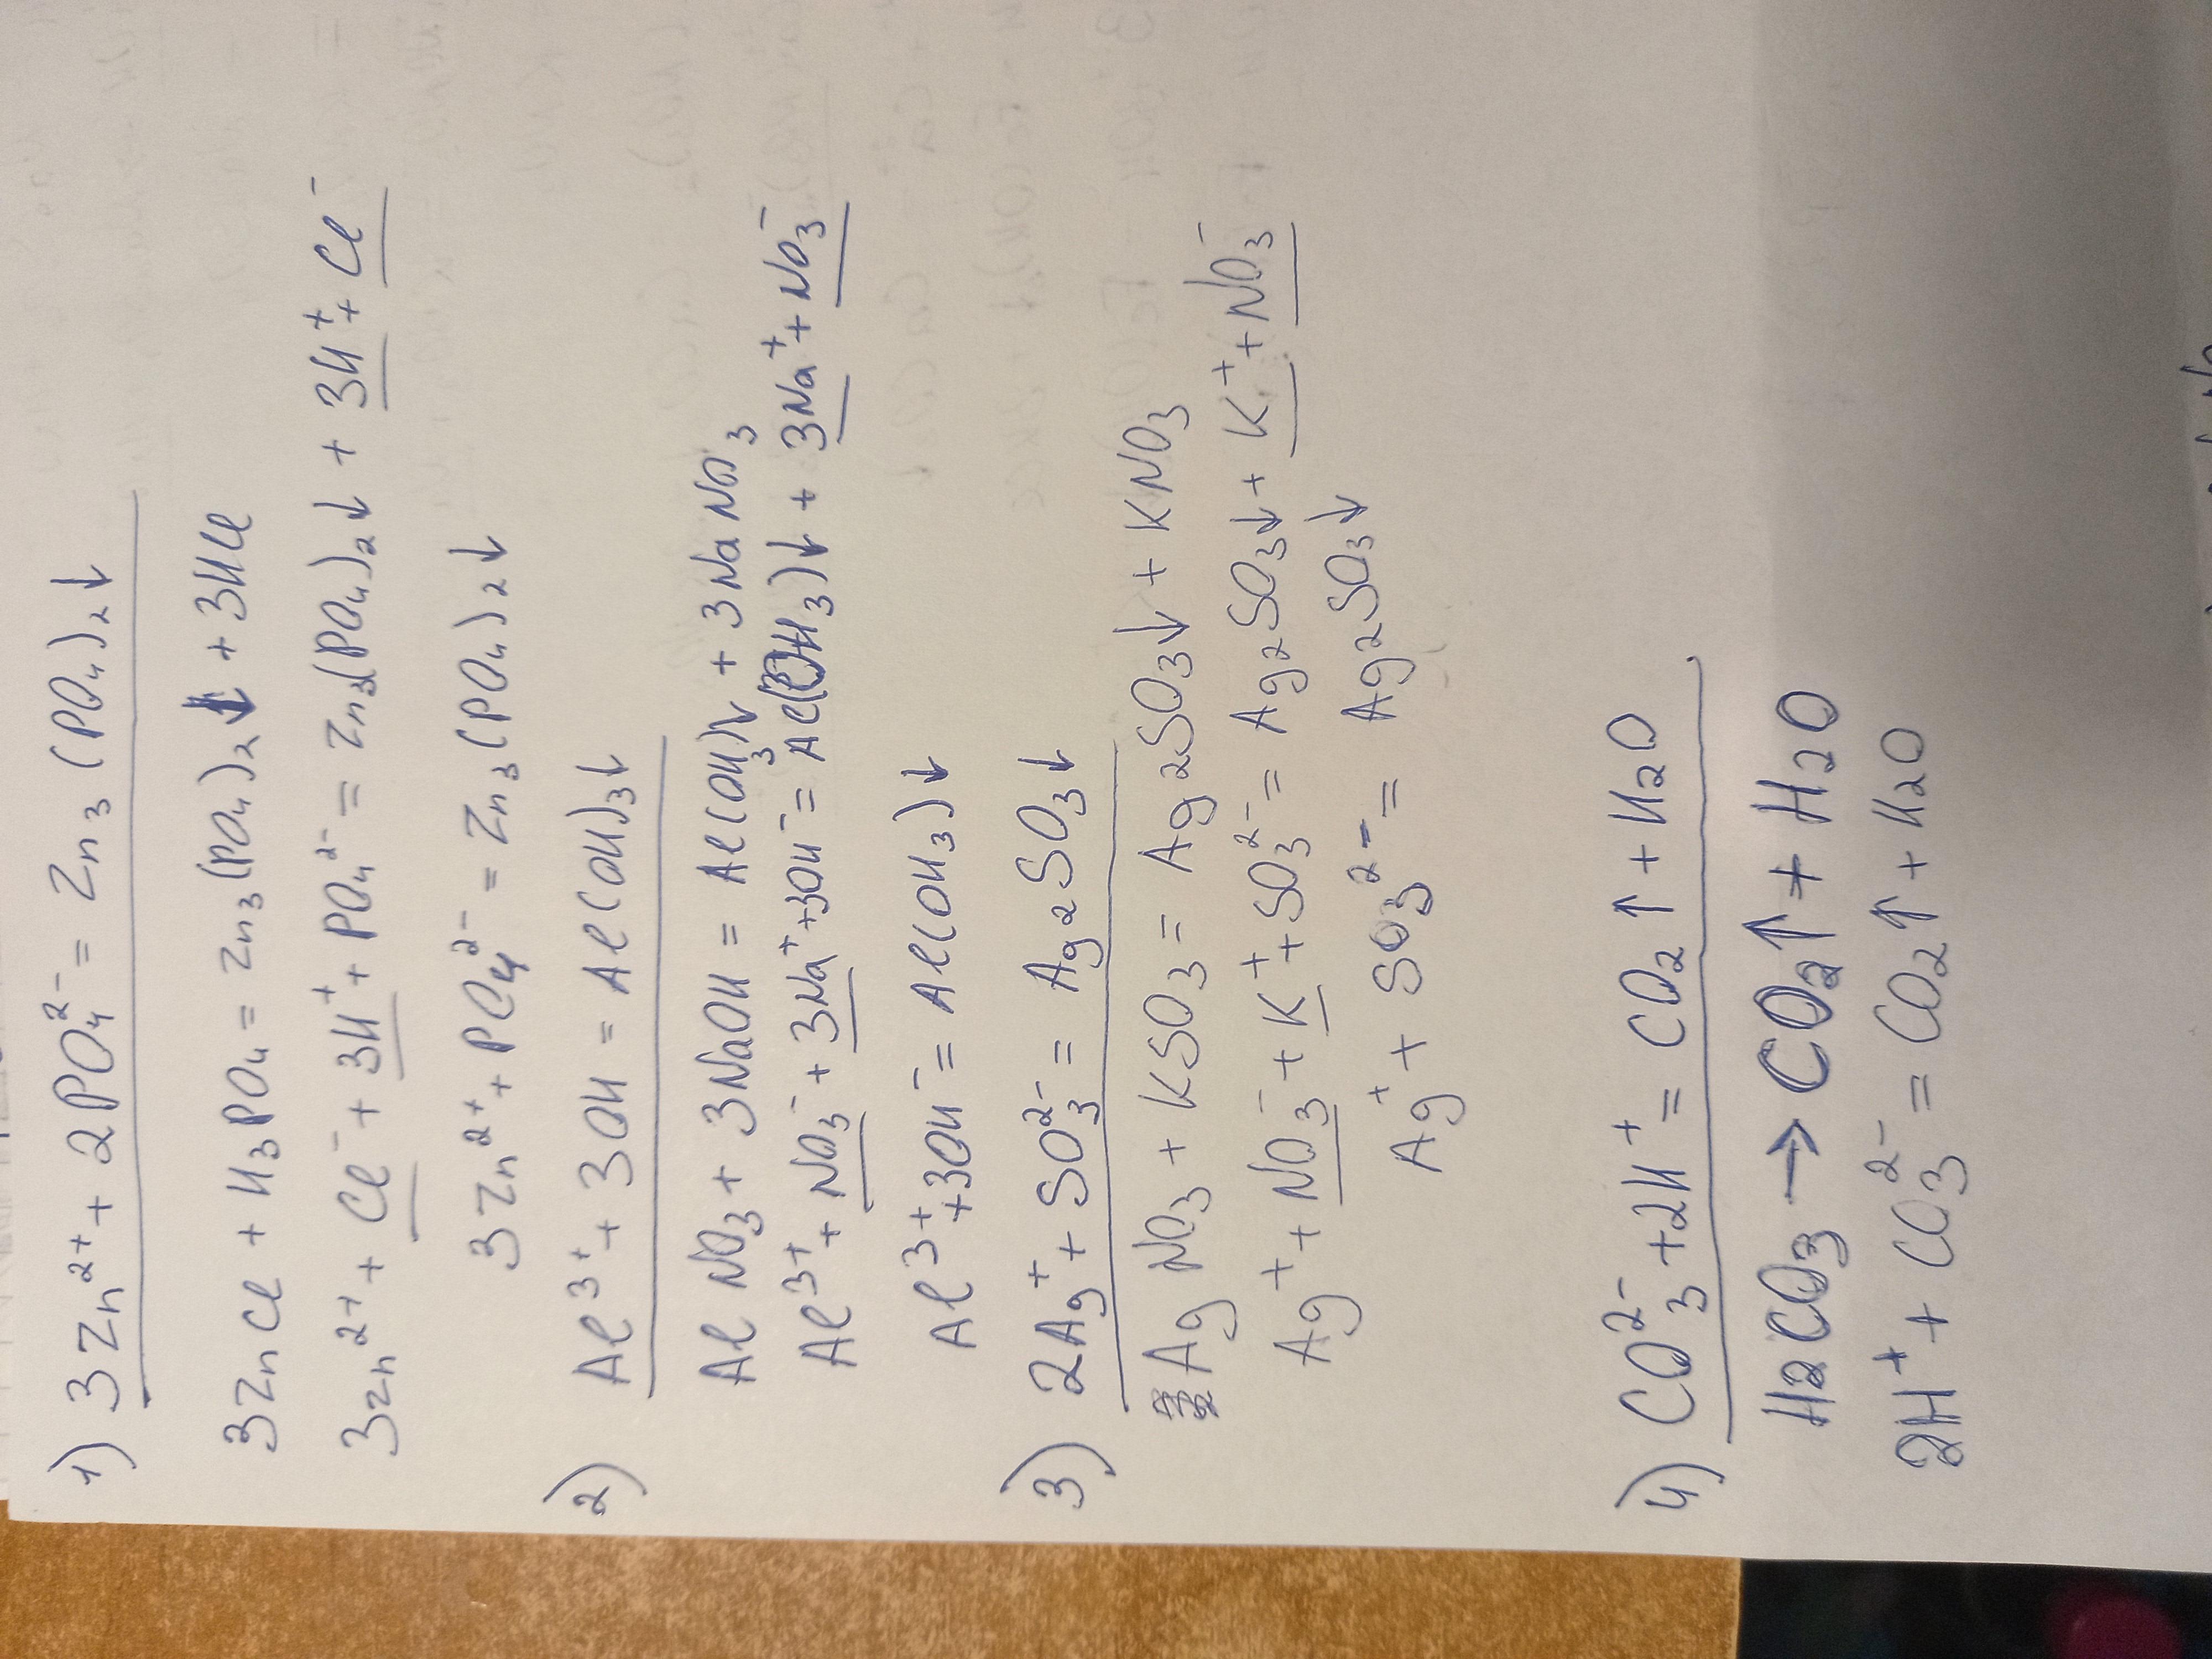 1) 3Zn²⁺ + 2PO₄²⁻ = Zn₃(PO₄)₂↓
3ZnCl + H₃PO₄ = Zn₃(PO₄)₂↓ + 3HCl
3Zn²⁺ + Cl⁻ + 3H⁺ + PO₄²⁻ = Zn₃(PO₄)₂↓ + 3H⁺ + Cl⁻
3Zn²⁺ + PO₄²⁻ = Zn₃(PO₄)₂↓
2) Al³⁺ + 3OH = Al(OH)₃↓
AlNO₃ + 3NaOH = Al(OH)₃↓ + 3NaNO₃
Al³⁺ + NO₃⁻ + 3Na⁺ + 3OH⁻ = Al(OH₃)↓ + 3Na⁺ + NO₃⁻
Al³⁺ + 3OH⁻ = Al(OH₃)↓
3) 2Ag⁺ + SO₃²⁻ = Ag₂SO₃↓
AgNO₃ + KSO₃ = Ag₂SO₃↓ + KNO₃
Ag⁺ + NO₃⁻ + K⁺ + SO₃²⁻ = Ag₂SO₃↓ + K⁺ + NO₃⁻
Ag⁺ + SO₃²⁻ = Ag₂SO₃↓
4) CO₃²⁻ + 2H⁺ = CO₂↑ + H₂O
H₂CO₃ → CO₂↑ + H₂O
2H⁺ + CO₃²⁻ = CO₂↑ + H₂O